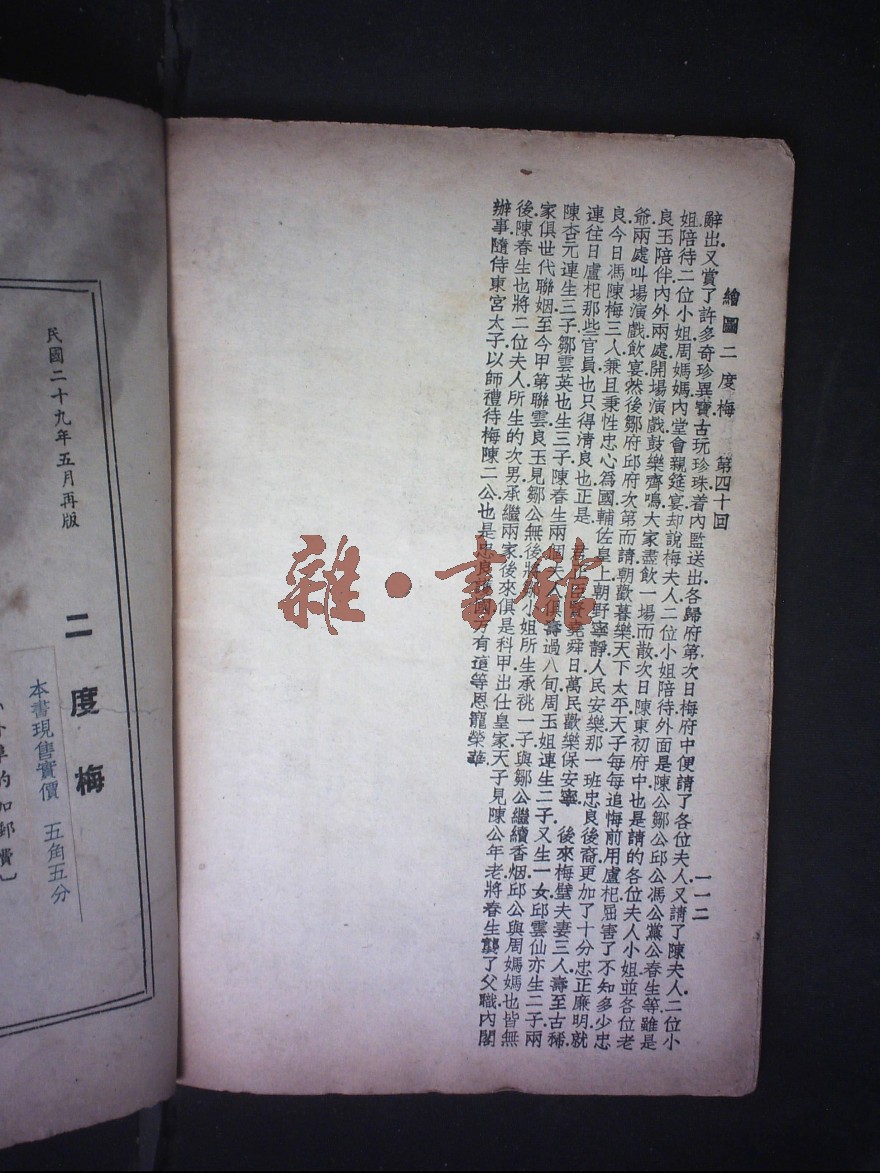 繪圖二度梅 第四十回 一一二
辭出.又賞了許多奇珍異寶古玩珍珠.着內監送出.各歸府第.次日梅府中便請了各位夫人.又請了陳夫人.二位小
姐.陪待二位小姐.周媽媽內堂會親筵宴.却說梅夫人二位小姐陪待.外面是陳公鄒公邱公馮公黨公春生等.雖是
良玉陪伴.內外兩處.開場演戲.鼓樂齊鳴.大家盡飲一場而散.次日陳東初府中.也是請的各位夫人小姐.並各位老
爺.兩處叫場演戲飲宴.然後鄒府邱府次第而請.朝歡暮樂.天下太平.天子每每追悔前用盧杞.屈害了不知多少忠
良.今日馮陳梅三人.兼且秉性忠心.為國輔佐皇上.朝野寧靜.人民安樂.那一班忠良後裔.更加了十分忠正廉明.就
連往日盧杞那些官員.也只得清良也.正是 君正臣賢堯舜日 萬民歡樂保安寧 後來梅璧夫妻三人.壽至古稀.
陳杏元連生三子.鄒雲英也生三子.陳春生兩個夫人.俱壽過八旬.周玉姐連生二子.又生一女.邱雲仙亦生二子.兩
家俱世代聯姻.至今甲第聯雲.良玉見鄒公無後.將 小姐所生承祧一子.與鄒公繼續香烟.邱公與周媽媽也皆無
後.陳春生也將二位夫人所生的次男承繼兩家.後來俱是科甲出仕皇家.天子見陳公年老.將春生襲了父職.內閣
辦事.隨侍東宮太子.以師禮待.梅陳二公也是忠良 國.方有這等恩寵榮華
雜·書館
民國二十九年五月再版
二度梅
本書現售實價 五角五分
的加郵費〕